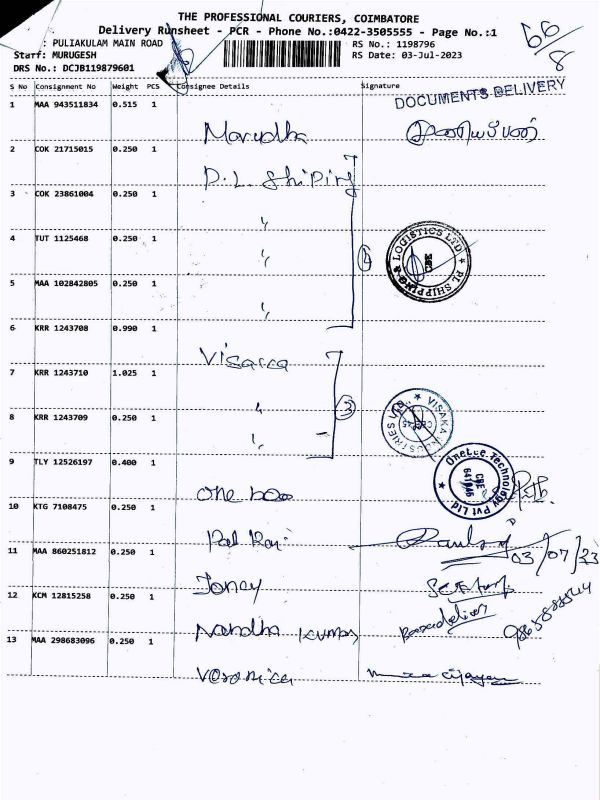 THE PROFESSIONAL COURIERS, COIMBATORE
Delivery Runsheet - PCR - Phone No.:0422-3505555 - Page No.:1
: PULIAKULAM MAIN ROAD
RS No.: 1198796
Staff: MURUGESH
RS Date: 03-Jul-2023
DRS No.: DCJB119879601
66/8
S No Consignment No Weight PCS Consignee Details Signature
DOCUMENTS DELIVERY
1 MAA 943511834 0.515 1
Marudha
2 COK 21715015 0.250 1
P.L. Shiping
3 COK 23861004 0.250 1
"
4 TUT 1125468 0.250 1
"
LOGISTICS LTD ★ PL SHIPPING &
CBE
5 MAA 102842805 0.250 1
"
6 KRR 1243708 0.990 1
Visaka
7 KRR 1243710 1.025 1
"
3
★ VISAKA INDUSTRIES LTD.
8 KRR 1243709 0.250 1
"
9 TLY 12526197 0.400 1
OneLee Technology Pvt Ltd ★
CBE
10 KTG 7108475 0.250 1
03/07/23
11 MAA 860251812 0.250 1
Joney
12 KCM 12815258 0.250 1
Nandha Kumar
13 MAA 298683096 0.250 1
Veronica